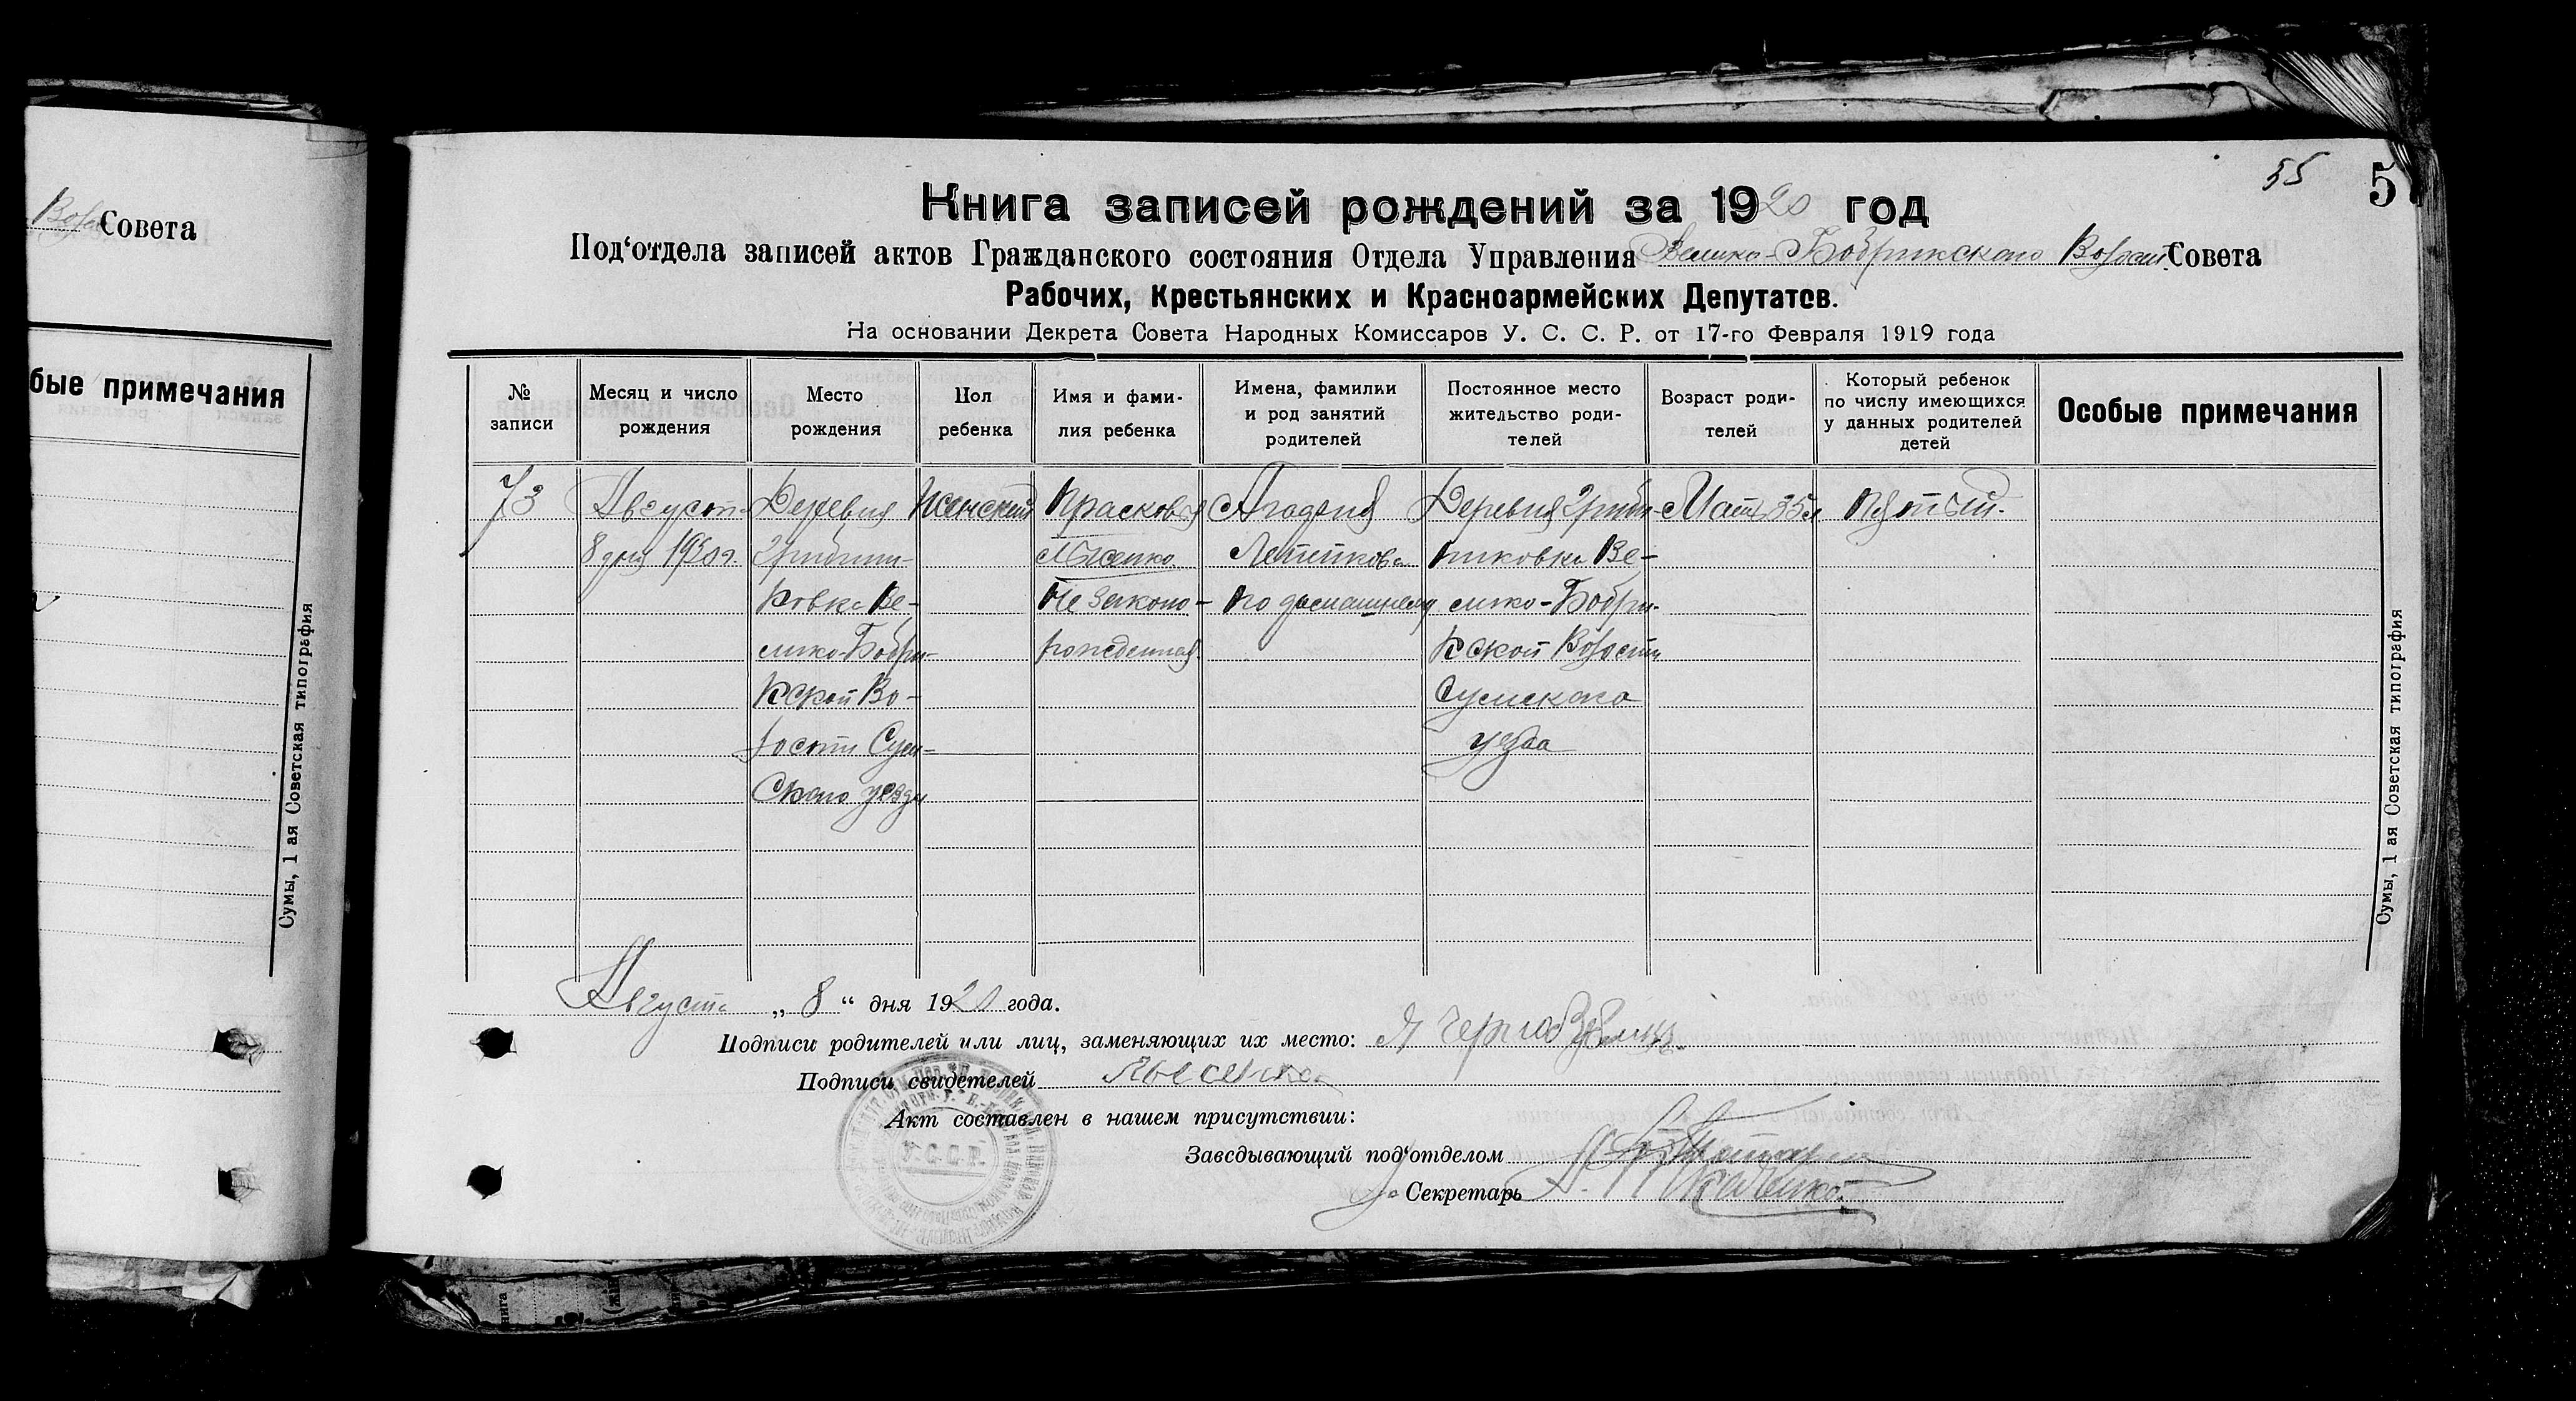 Волос Совета
бые примечания
Сумы, 1 ая Советская типография
55
5
Книга записей рождений за 1920 год
Под‘отдела записей актов Гражданского состояния Отдела Управления Велико-Бобрикского Волост. Совета
Рабочих, Крестьянских и Красноармейских Депутатов.
На основании Декрета Совета Народных Комиссаров У. С. С. Р. от 17-го Февраля 1919 года
№ записи
Месяц и число рождения
Место рождения
Пол ребенка
Имя и фами-
лия ребенка
Имена, фамилии
и род занятий
родителей
Постоянное место
жительство роди-
телей
Возраст роди-
телей
Который ребенок
по числу имеющихся
у данных родителей
детей
Особые примечания
73
Август
8 дня 1920 г.
Деревня
Ве-
лико-Бобри-
кской Во-
лости Сум-
ского уезда
Женский
Прасковья
Не законо-
рожденная
По домашнему
Деревня
Ве-
лико-Бобри-
кской Волости
Сумского
уезда
Мать 35 л
Пятый.
Августа „ 8 “ дня 1920 года.
Подписи родителей или лиц, заменяющих их место:
Подписи свидетелей
Акт составлен в нашем присутствии:
Заведывающий под‘отделом
Секретарь
У.С.С.Р.
Сумы, 1 ая Советская типография